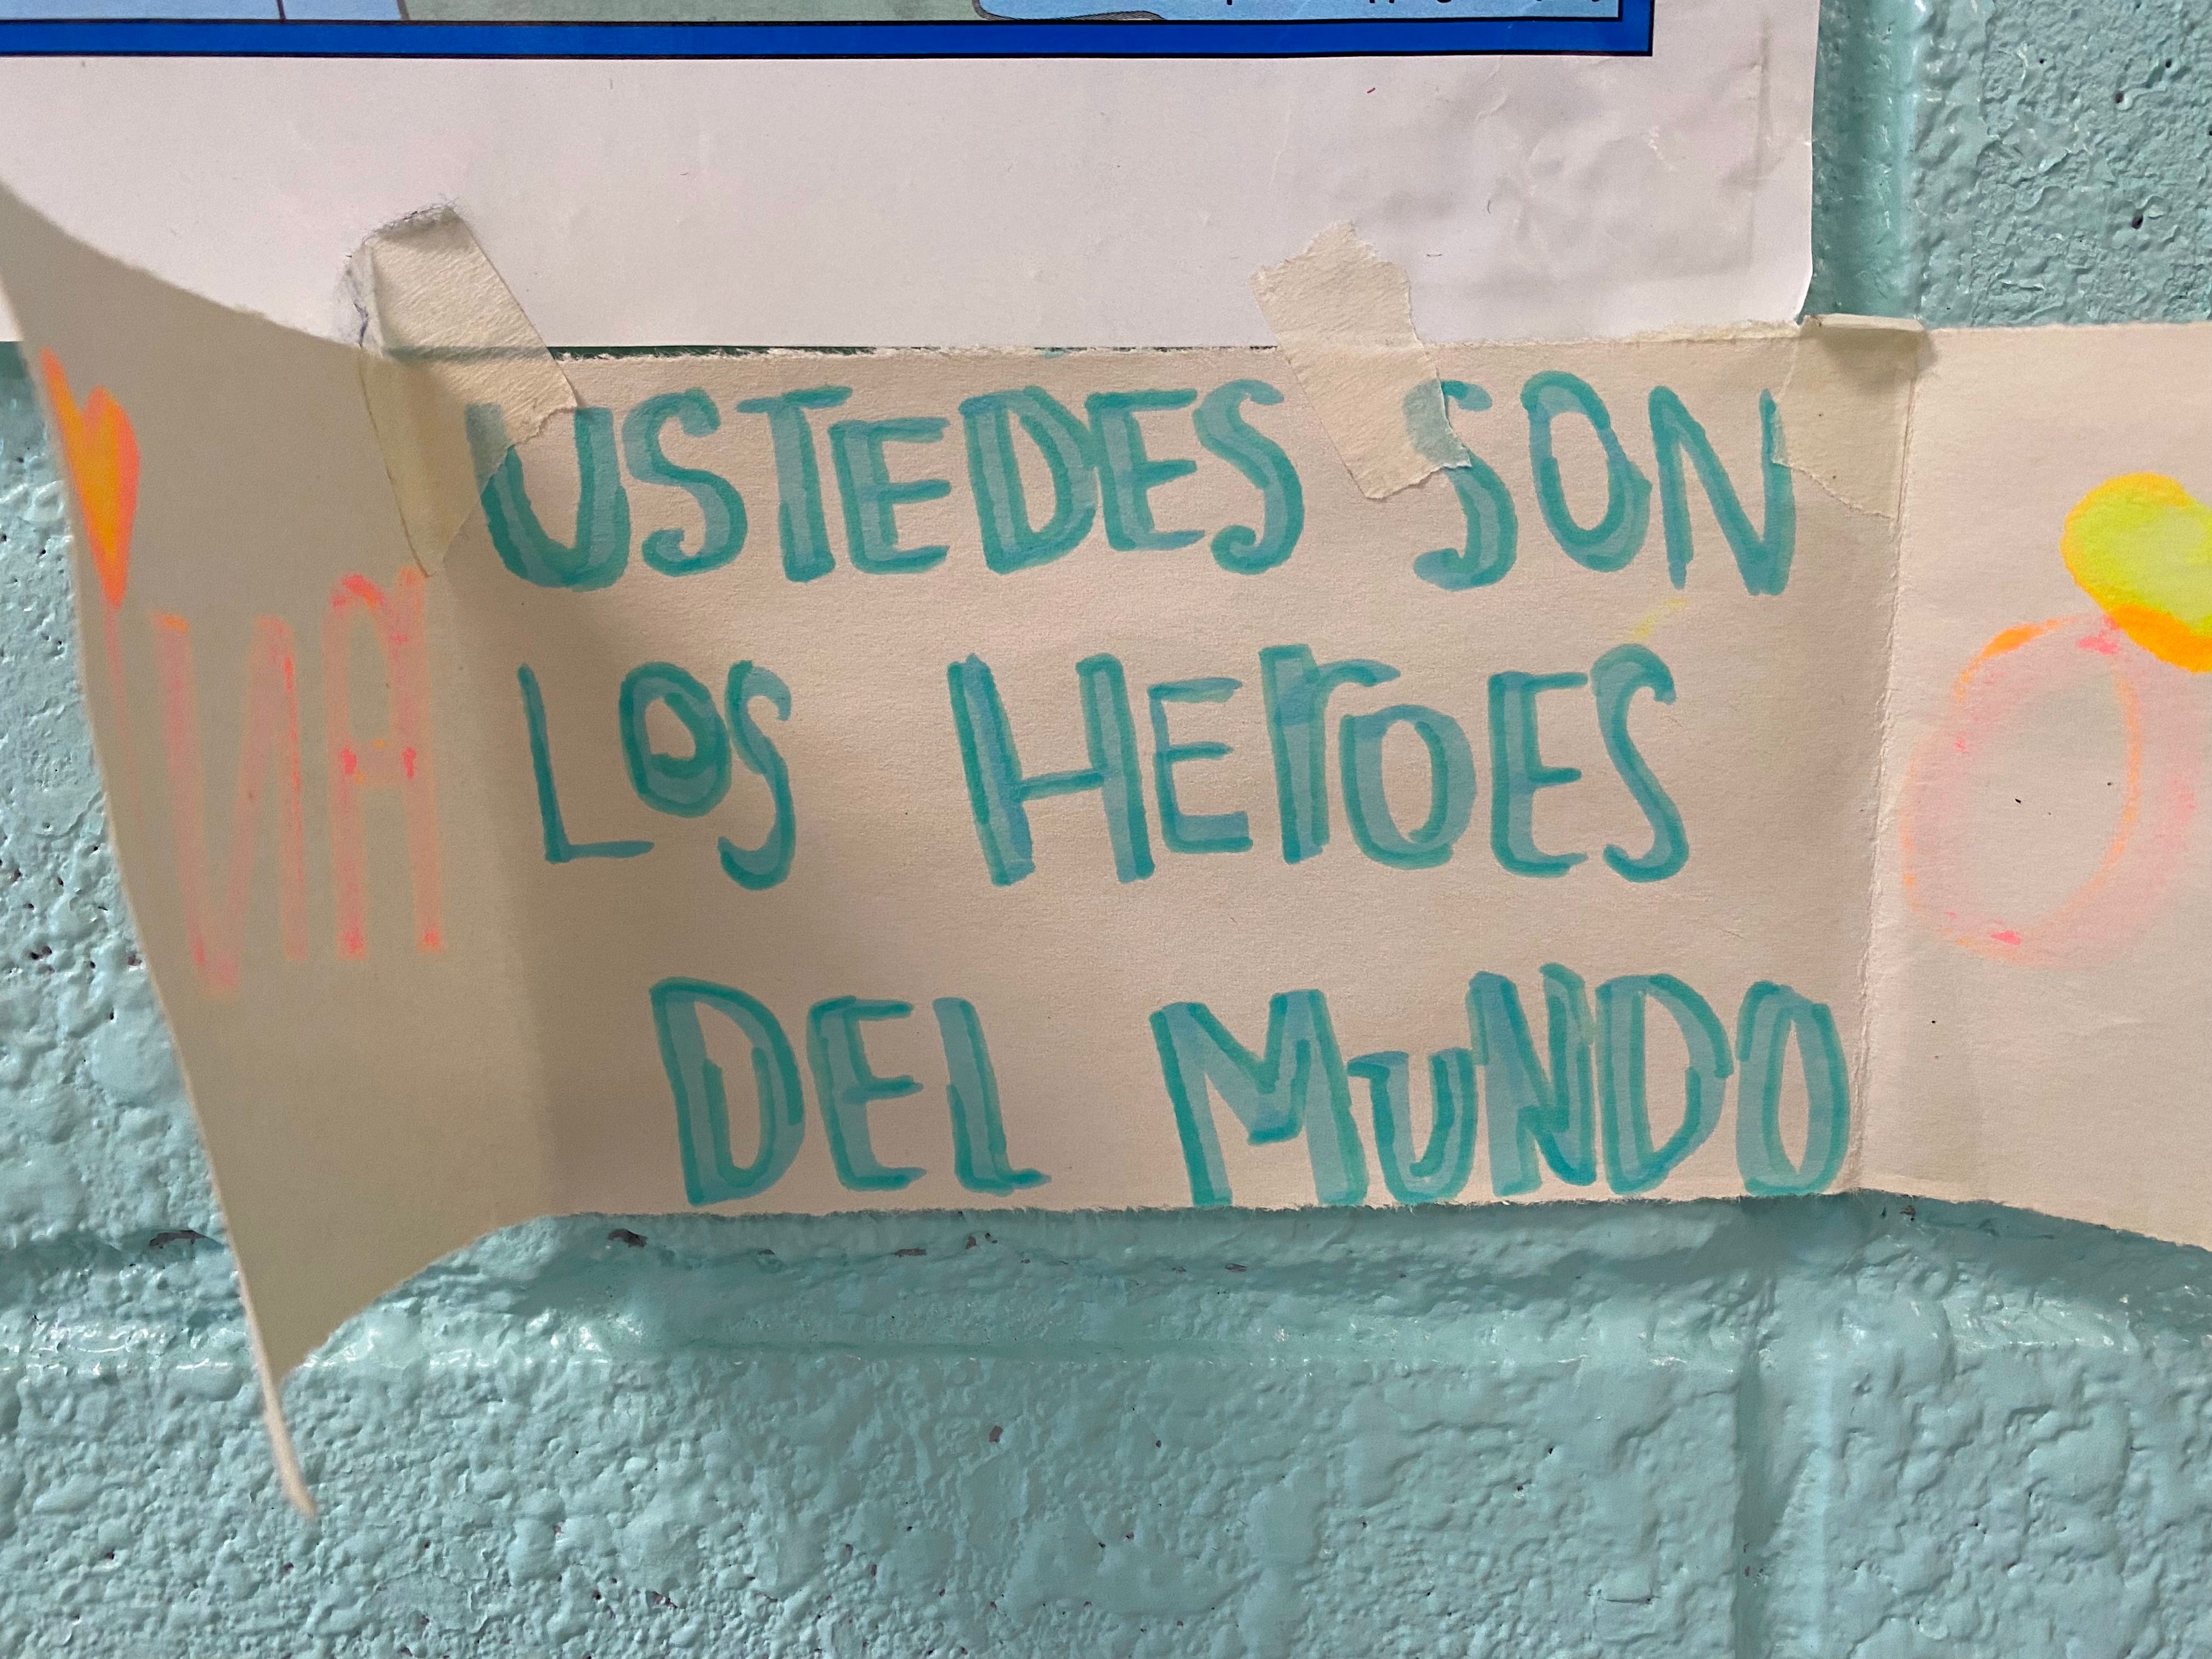 USTEDES SON
LOS HEROES
DEL MUNDO